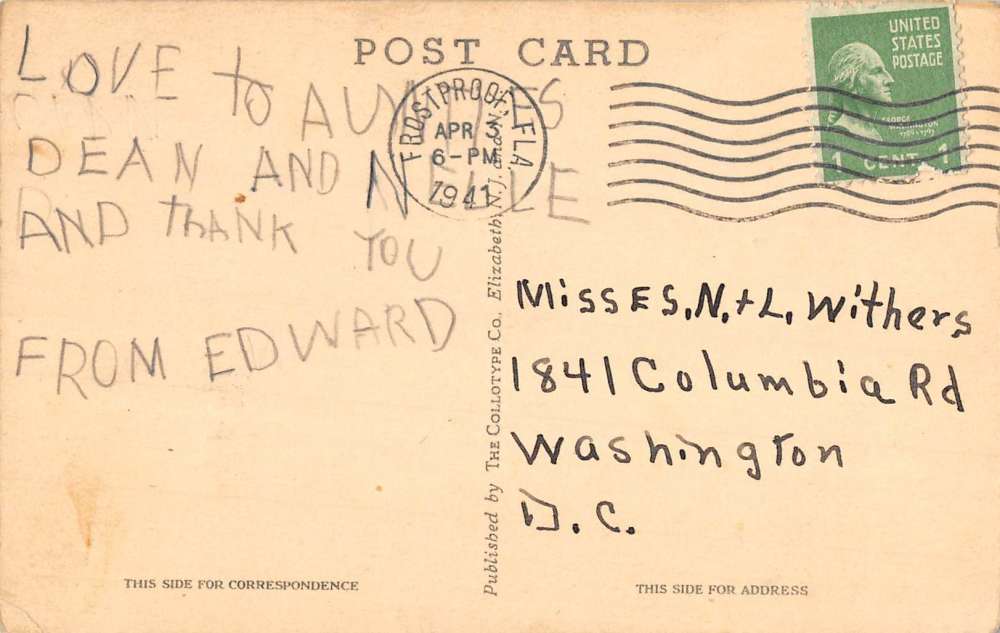 POST CARD
LOVE to AUNTS
DEAN AND NELLIE
AND ThANK YOU
FROM EDWARD
FROSTPROOF, FLA.
APR 3
6-PM
1941
UNITED
STATES
POSTAGE
GEORGE
WASHINGTON
1 CENT 1
MissES. N. + L. Withers
1841 Columbia Rd
Washington
D. C.
Published by THE COLLOTYPE CO., Elizabeth, N.J. and N.Y.
THIS SIDE FOR CORRESPONDENCE
THIS SIDE FOR ADDRESS